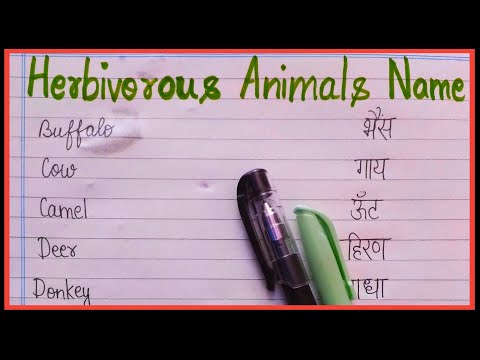 Herbivorous Animals Name
Buffalo भैंस
Cow गाय
Camel ऊँट
Deer हिरण
Donkey गधा